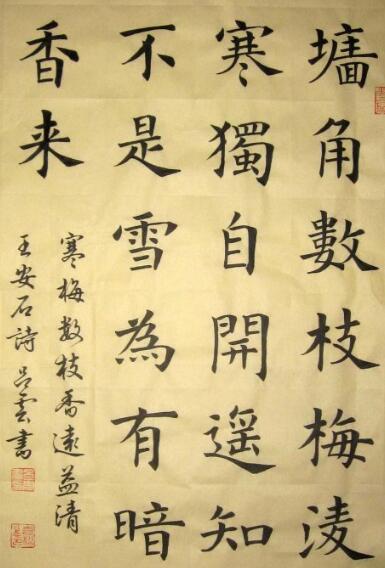 墻角數枝梅淩
寒獨自開遥知
不是雪為有暗
香来
寒梅数枝香遠益清
王安石詩 吕雲書